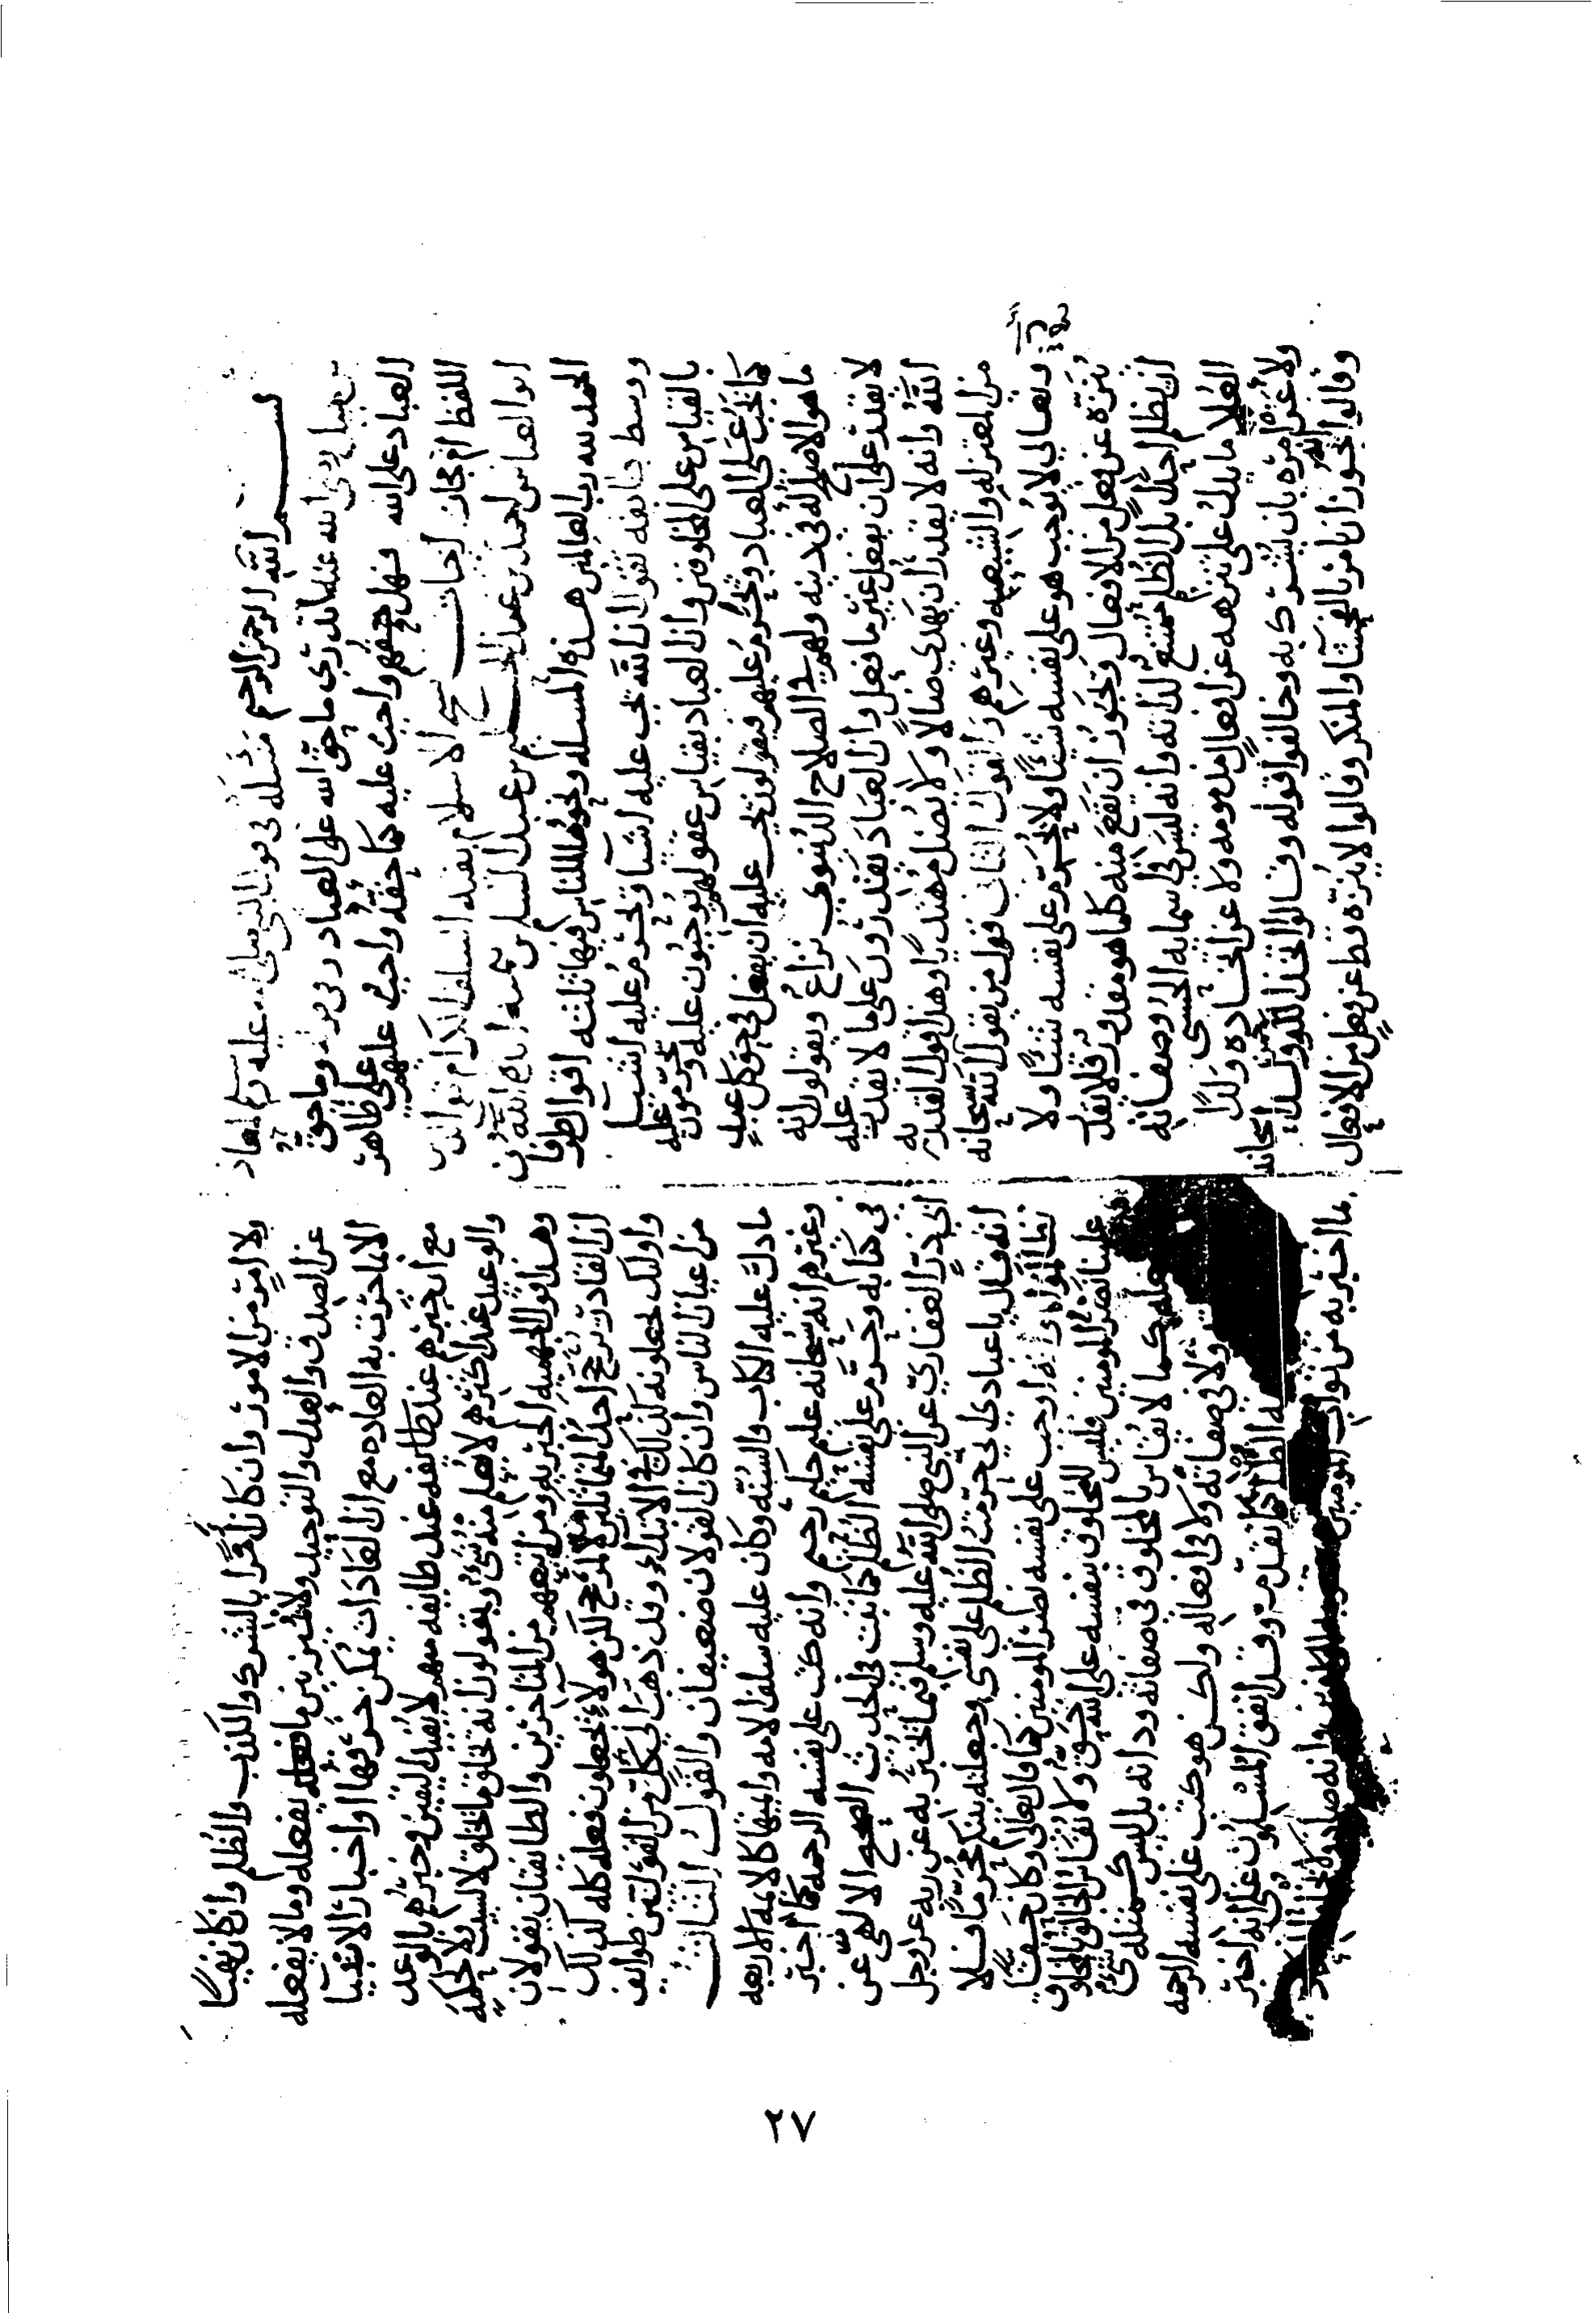 بسم الله الرحمن الرحيم مسئله في قول النبي صلى الله عليه وسلم لمعاذ
بن جبل رضي الله عنه اتدري ما حق الله على العباد وما حق
العباد على الله فهل حقهم واجب عليه كما حقه واجب عليهم على ظاهر
اللفظ ام مجاز اجاب شيخ الاسلام بقية السلف الكرام تقي الدين
ابو العباس احمد بن عبد الحليم بن عبد السلام بن تيميه
الحمد لله رب العالمين هذه المسئله ونحوها للناس فيها ثلثة اقوال طرفان
ووسط طائفه تقول ان الله يجب عليه اشيا وتحرم عليه اشيا
بالقياس على المخلوقين وان العباد بقياس عقولهم يوجبون عليه ويحرمون عليه
كما يجب على العباد ويحرم عليهم فيقولون يجب عليه ان يفعل في حق كل عبد
ما هو الاصلح له في دينه ولهم في الصلاح الدنيوي نزاع ويقولون انه
لا يقدر على ان يفعل غير ما فعل وان العباد يقدرون على ما لا يقدر عليه
الله وانه لا يقدر ان يهدي ضالا ولا يضل مهتديا وهذا قول القدريه
من المعتزله والشيعه وغيرهم القول الثاني قول من يقول انه سبحانه
وتعالى لا يوجب هو على نفسه شيئا ولا يحرم على نفسه شيئا ولا
ينزه عن فعل من الافعال ويجوز ان يقع منه كلما هو مقدور فلا يقدر
ان يظلم احدا بل الظلم ممتنع لذاته وانه ليس في اسمايه الحسنى وصفاته
العلا ما يدل على تنزهه عن افعال مذمومه ولا عن اتخاده ولدا
ولا عن امره بان يشرك به وخالفوا قوله وقالوا اتخذ الرحمن ولدا سبحانه
وقالوا يجوز ان يامر بالفحشا والمنكر وقالوا لا ينزه قط عن فعل من الافعال
ولا امر من الامور وان كان امرا بالشرك والكذب والظلم وان كان نهيا
عن الصدق والعدل والتوحيد ولا تمييز بين ما يفعله وما لا يفعله
الا ما جرت به العاده مع ان العادات يمكن خرقها او اخبار الانبيا
مع ان خبرهم عند طائفه منهم لا يفيد اليقين وخبرهم بالوعد
والوعيد عند اكثرهم لا يعلم منه شي ويقولون انه تخلق ما تخلق لا لسبب ولا لحكمه
وهذا قول الجهميه المجبره ومن اتبعهم من المتاخرين والطائفتان يقولان
ان القادر يرجح احد المتماثلين بلا مرجح لكن هولاء يجعلون فعله كله كذلك
واوليك يجعلونه كذلك في الابتداء وقد ذهب الى كل من القولين طوائف
من اعيان الناس وان كان القولان ضعيفان والقول الثالث
ما دل عليه الكتاب والسنه وكان عليه سلف الامه وايمتها كالايمه الاربعه
وغيرهم انه سبحانه عليم حكيم رحيم وانه كتب على نفسه الرحمه كما اخبر
في كتابه وحرم على نفسه الظلم كما ثبت في الحديث الصحيح الالهي عن
ابي ذر الغفاري عن النبي صلى الله عليه وسلم فيما يخبر به عن ربه عز وجل
انه قال يا عبادي اني حرمت الظلم على نفسي وجعلته بينكم محرما فلا
تظالموا وانه اوجب على نفسه نصر المومنين كما قال تعالى وكان حقا
علينا نصر المومنين فليس للمخلوق بنفسه على الله حق ولا يقاس الخالق بالمخلوق
كما لا يقاس بالمخلوق في صفاته وذاته بل ليس كمثله شي
ولا في صفاته ولا في افعاله ولكن هو كتب على نفسه الرحمه
وقد اتفق المسلمون على انه اخبر
وانه صادق
بما اخبر به من ثواب المومنين
٢٧